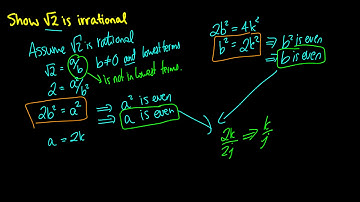 Show √2 is irrational
Assume √2 is rational
√2 = a/b b ≠ 0 and lowest terms
is not in lowest terms.
2 = a²/b²
2b² = a² ⇒ a² is even
⇒ a is even
a = 2k
2b² = 4k²
b² = 2k² ⇒ b² is even
⇒ b is even
2k/2j ⇒ k/j